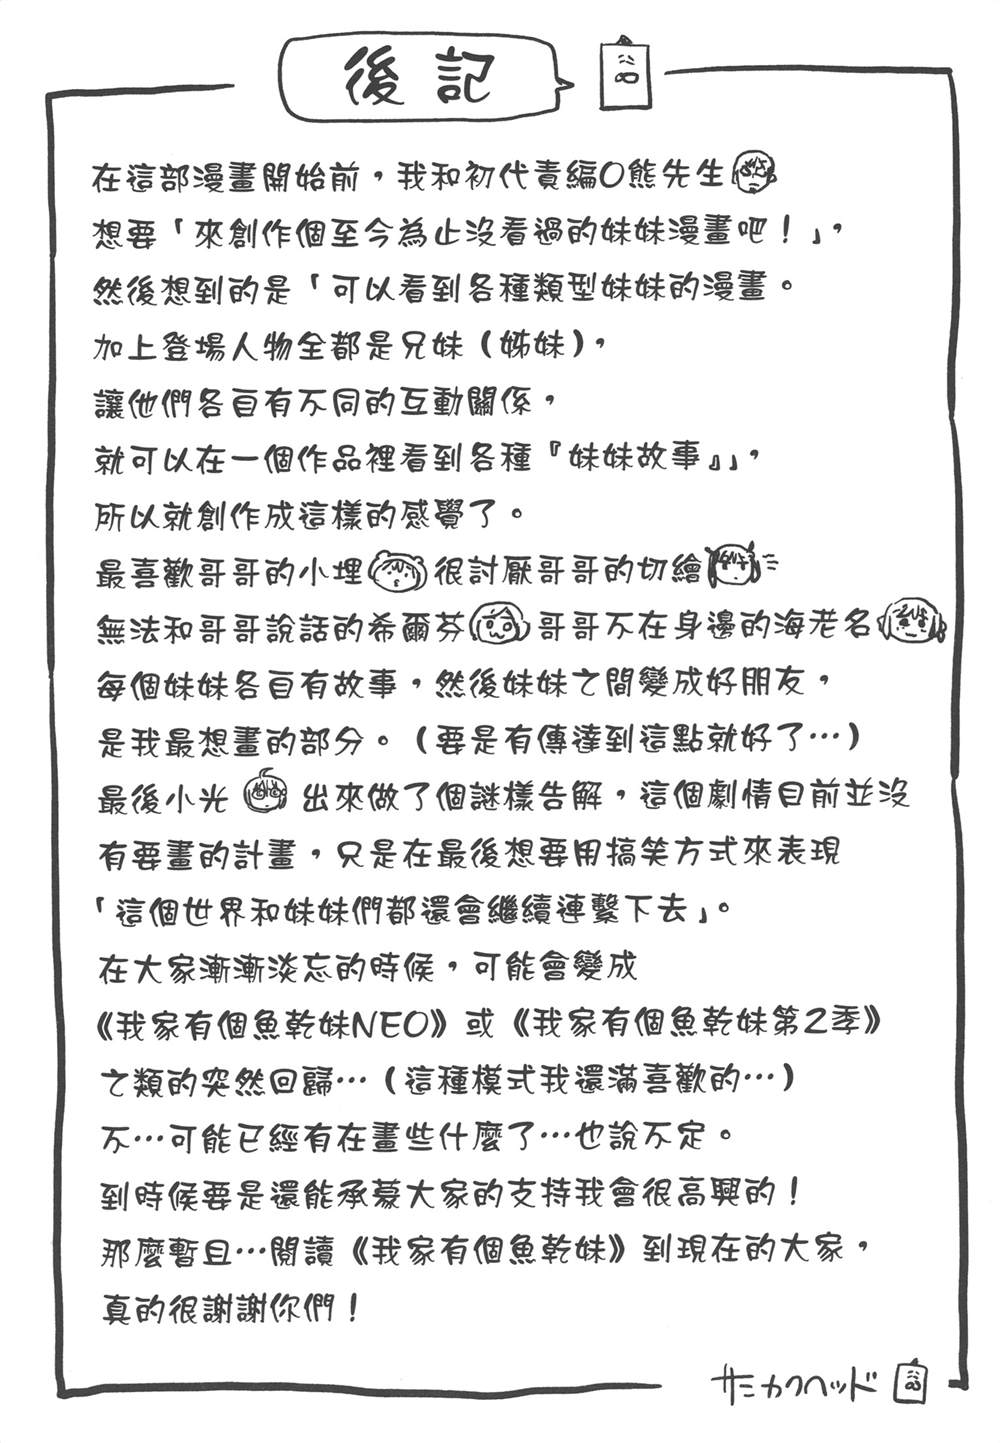 後記
在這部漫畫開始前，我和初代責編O熊先生
想要「來創作個至今為止沒看過的妹妹漫畫吧！」，
然後想到的是「可以看到各種類型妹妹的漫畫。
加上登場人物全都是兄妹（姊妹），
讓他們各自有不同的互動關係，
就可以在一個作品裡看到各種『妹妹故事』」，
所以就創作成這樣的感覺了。
最喜歡哥哥的小埋 很討厭哥哥的切繪
無法和哥哥說話的希爾芬 哥哥不在身邊的海老名
每個妹妹各自有故事，然後妹妹之間變成好朋友，
是我最想畫的部分。（要是有傳達到這點就好了…）
最後小光 出來做了個謎樣告解，這個劇情目前並沒
有要畫的計畫，只是在最後想要用搞笑方式來表現
「這個世界和妹妹們都還會繼續連繫下去」。
在大家漸漸淡忘的時候，可能會變成
《我家有個魚乾妹NEO》或《我家有個魚乾妹第2季》
之類的突然回歸…（這種模式我還滿喜歡的…）
不…可能已經有在畫些什麼了…也說不定。
到時候要是還能承蒙大家的支持我會很高興的！
那麼暫且…閱讀《我家有個魚乾妹》到現在的大家，
真的很謝謝你們！
サンカクヘッド